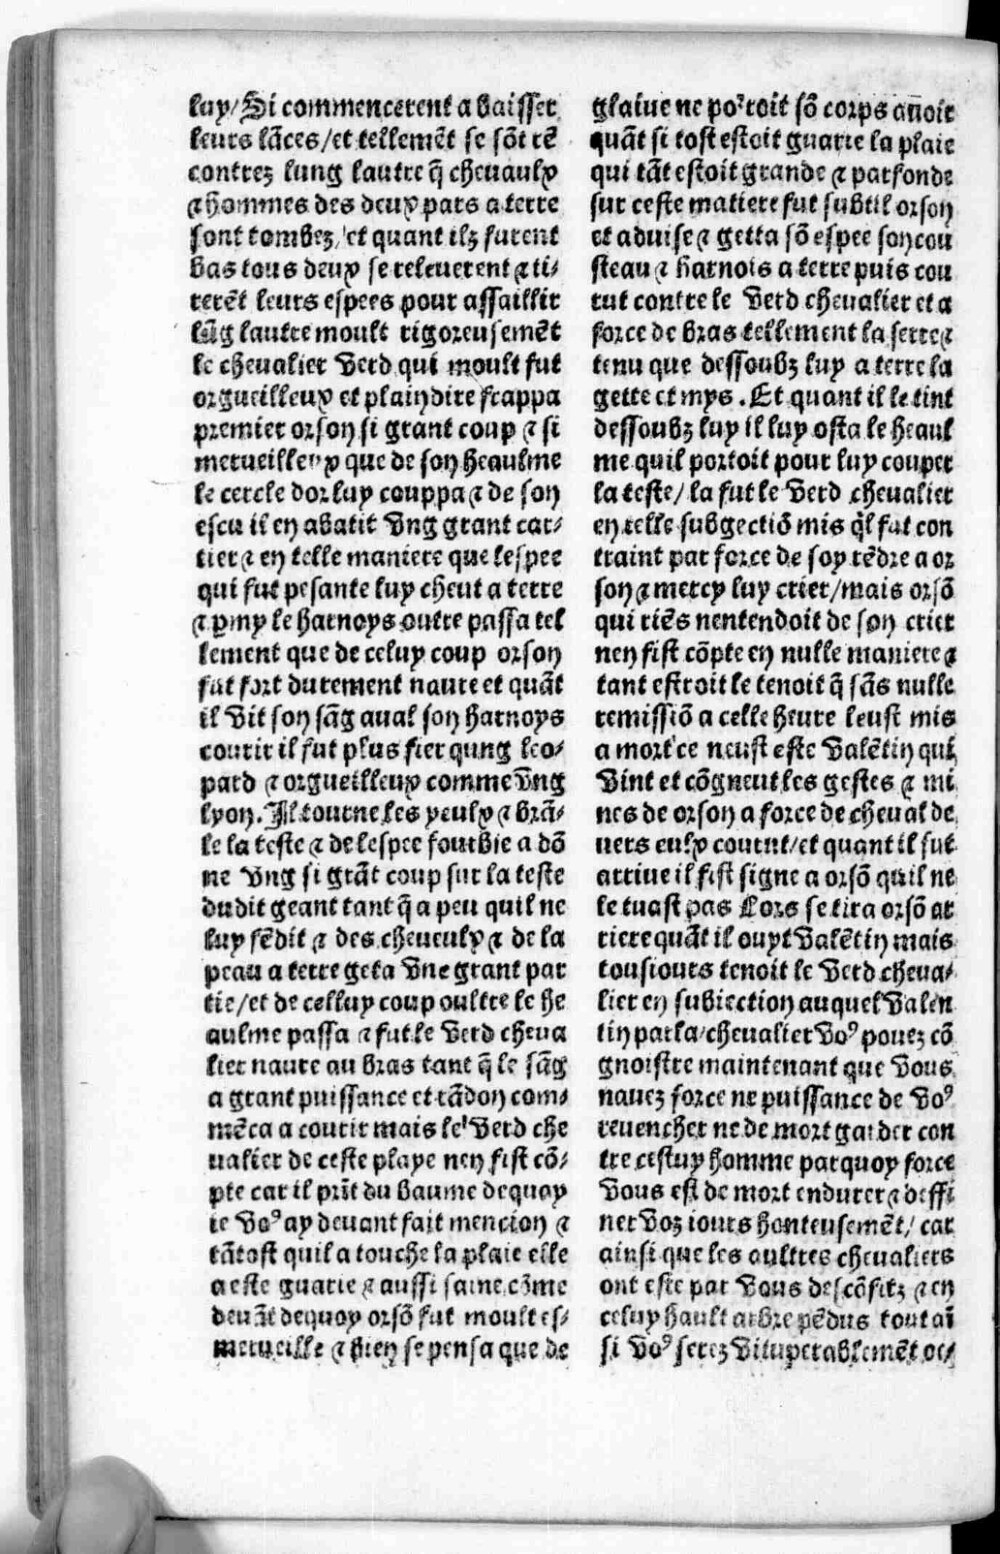 luy/Si commencerent a baisser
leurs lãces/et tellemẽt se sõt rẽ
contrez lung lautre q̃ cheuaulx
⁊ hommes des deux pars a terre
sont tombez/et quant ilz furent
bas tous deux se releuerent ⁊ ti-
rerẽt leurs espees pour assaillir
lũg lautre moult rigoreusemẽt
le cheualier Verd qui moult fut
orgueilleux et plain dire frappa
premier orson si grant coup ⁊ si
merueilleux que de son heaulme
le cercle dor luy couppa ⁊ de son
escu il en abatit Vng grant car-
tier ⁊ en telle maniere que lespee
qui fut pesante luy cheut a terre
⁊ ꝑmy le harnoys outre passa tel
lement que de celuy coup orson
fut fort durement naure et quãt
il Vit son sãg aual son harnoys
courir il fut plus fier qung leo-
pard ⁊ orgueilleux comme Vng
lyon. Il tourne les yeulx ⁊ brã-
le la teste ⁊ de lespee fourbie a dõ
ne Vng si grãt coup sur la teste
dudit geant tant q̃ a peu quil ne
luy fẽdit ⁊ des cheueulx ⁊ de la
peau a terre geta Vne grant par
tie/et de celluy coup oultre le he
aulme passa ⁊ fut le Verd cheua
lier naure au bras tant q̃ le sãg
a grant puissance et rãdon com-
mẽca a courir mais le Verd che
ualier de ceste playe nen fist cõ-
pte car il prĩt du baume dequoy
ie Vo⁹ ay deuant fait mencion ⁊
tãtost quil a touche la plaie elle
a este guarie ⁊ aussi saine cõme
deuãt dequoy orsõ fut moult es-
merueille ⁊ bien se pensa que de
glaiue ne po⁹roit sõ corps añoir
quãt si tost estoit guarie la plaie
qui tãt estoit grande ⁊ parfonde
sur ceste matiere fut subtil orson
et aduise ⁊ getta sõ espee son cou
steau ⁊ harnois a terre puis cou
rut contre le Verd cheualier et a
force de bras tellement la serre ⁊
tenu que dessoubz luy a terre la
gette et mys. Et quant il le tint
dessoubz luy il luy osta le heaul
me quil portoit pour luy couper
la teste/ la fut le Verd cheualier
en telle subgectiõ mis q̃l fut con
traint par force de soy rẽdre a or
son ⁊ mercy luy crier/mais orsõ
qui riẽs nentendoit de son crier
nen fist cõpte en nulle maniere ⁊
tant estroit le tenoit q̃ sãs nulle
remissiõ a celle heure leust mis
a mort ce neust este Valẽtin qui
Vint et cõgneut les gestes ⁊ mi
nes de orson a force de cheual de
uers eulx courut/et quant il fut
arriue il fist signe a orsõ quil ne
le tuast pas Lors se tira orsõ ar
riere quãt il ouyt Valẽtin mais
tousiours tenoit le Verd cheua-
lier en subiection auquel Valen
tin parla/cheualier Vo⁹ pouez cõ
gnoistre maintenant que Vous
nauez force ne puissance de Vo⁹
reuencher ne de mort garder con
tre cestuy homme parquoy force
Vous est de mort endurer ⁊ deffi
ner Voz iours honteusemẽt/ car
ainsi que les aultres cheualiers
ont este par Vous descõfitz ⁊ en
celuy hault arbre pẽdus tout aĩ
si Vo⁹ serez Vituperablemẽt oc-